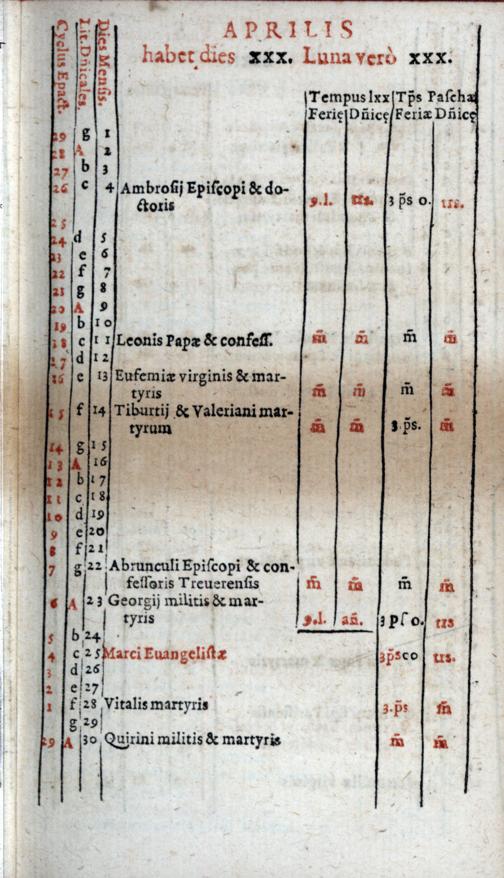 APRILIS
habet dies xxx. Luna verò xxx.
Cyclus Epact. Lit. Dñicales. Dies Mensis.
Tempus lxx Tp̄s Paſcha
Ferię Dñicę Feriæ Dñicę
29 g 1
28 A 2
27 b 3
26 c 4 Ambroſij Epiſcopi & do- 9.l. 3 p̄s o.
ctoris
25
24 d 5
23 e 6
22 f 7
21 g 8
20 A 9
19 b 10
18 c 11 Leonis Papæ & confeſſ. m̄ m̄ m̄ m̄
17 d 12
16 e 13 Eufemiæ virginis & mar-
tyris m̄ m̄ m̄ m̄
15 f 14 Tiburtij & Valeriani mar-
tyrum m̄ m̄ 3 p̄s. m̄
14 g 15
13 A 16
12 b 17
11 c 18
10 d 19
9 e 20
8 f 21
7 g 22 Abrunculi Epiſcopi & con-
feſſoris Treuerenſis m̄ m̄ m̄ m̄
6 A 23 Georgij militis & mar-
tyris 9.l. añ. 3 pſ o.
5 b 24
4 c 25 Marci Euangeliſtæ 3p̄sco
3 d 26
2 e 27
1 f 28 Vitalis martyris 3.p̄s m̄
g 29
29 A 30 Quirini militis & martyris m̄ m̄